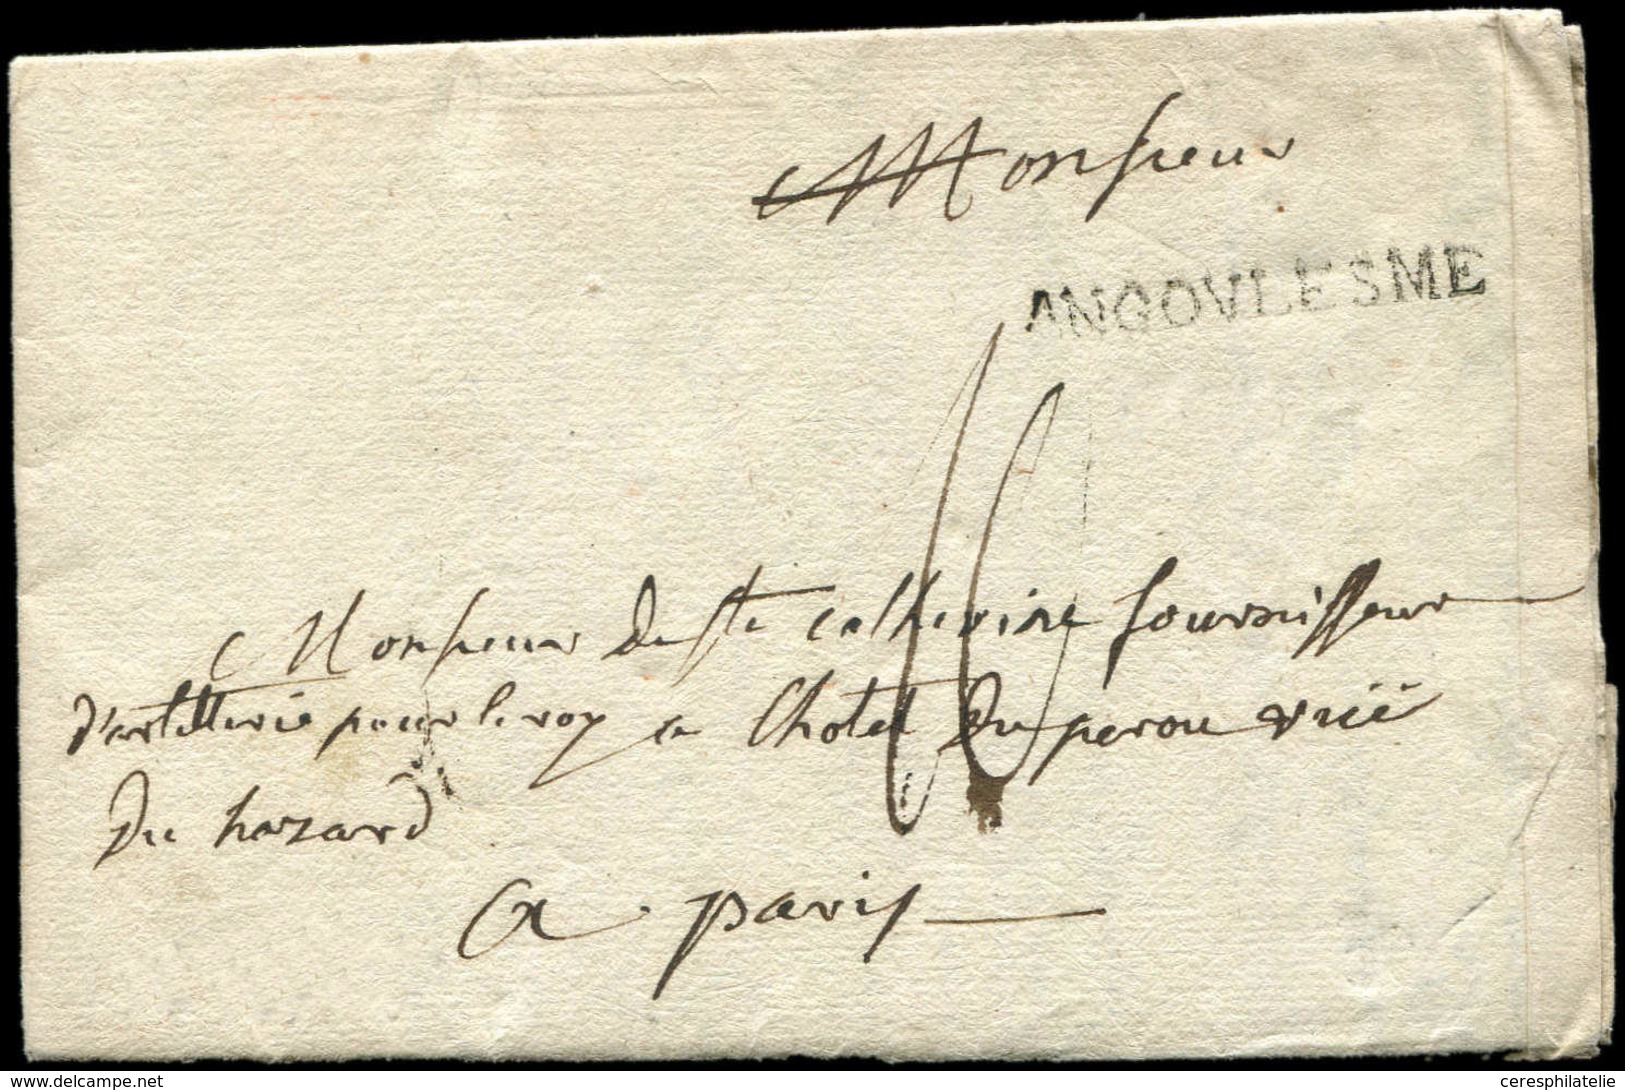 Monsieur
ANGOVLESME
Monsieur de Ste catherine fournisseur
d'artillerie pour le roy a lhotel du perou rüe
du hazard
a paris
www.delcampe.net
ceresphilatelie